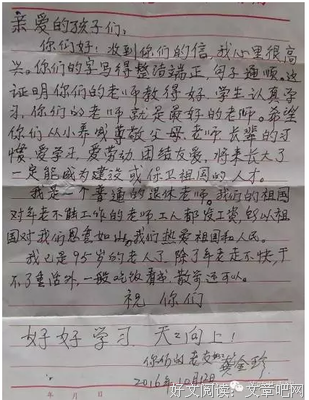 亲爱的孩子们:
你们好!收到你们的信,我心里很高
兴。你们的字写得整洁端正,句子通顺。这
证明你们的老师教得好,学生认真学
习,你们的老师就是最好的老师。希望
你们从小养成尊敬父母、老师长辈的习
惯,爱学习,爱劳动,团结友爱,将来长大了
一定能成为建设或保卫祖国的人才。
我是一个普通的退休老师。我们的祖国
对年老不能工作的老师、工人都发工资,所以祖
国对我们恩重如山,我们热爱祖国和人民。
我已是95岁的老人了,除了年老走不快,干
不了重活外,一般吃饭看书、散步还可以。
祝你们
好好学习 天天向上!
你们的老
龚全珍
2016年12月12日
年 月 日
好文阅读:文章吧网